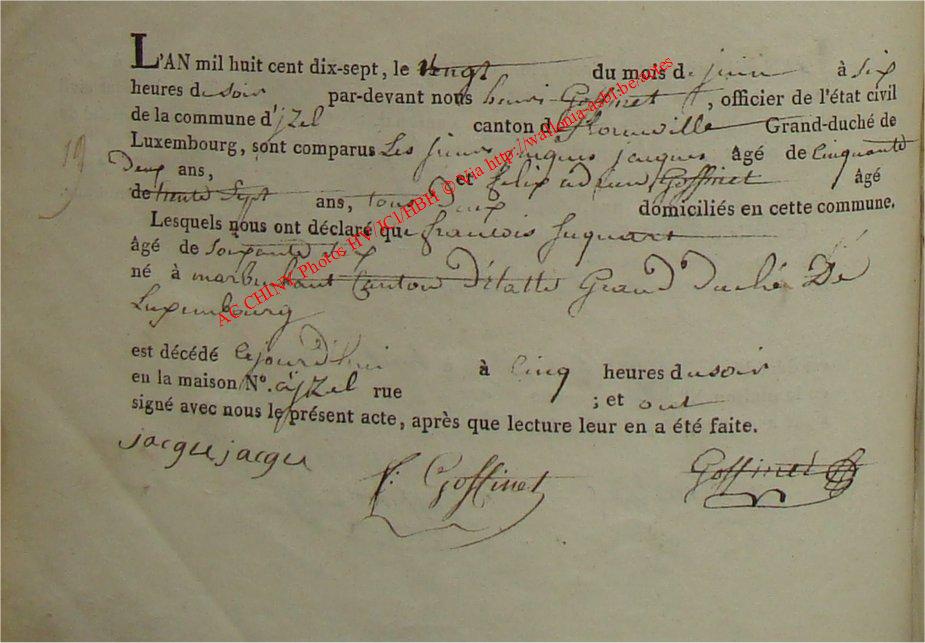 L'AN mil huit cent dix-sept, le vengt du mois de juin à six
heures du soir par-devant nous henri Goffinet, officier de l'état civil
de la commune d'jzel canton de florenville Grand-duché de
Luxembourg, sont comparus Les jacques âgé de Cinquante
19
Deux ans, et felix adrien Goffinet âgé
de trente Sept ans, tous deux domiciliés en cette commune.
Lesquels nous ont déclaré que francois
âgé de Soixante
né à Canton Grand Duché De
Luxembourg
est décédé à Cinq heures du soir
en la maison N°. rue ; et ont
signé avec nous le présent acte, après que lecture leur en a été faite.
jacque jacque
f: Goffinet
Goffinet
AC CHINY Photos HV/ICI/HBH © via http://wallonia-asbl.be/actes